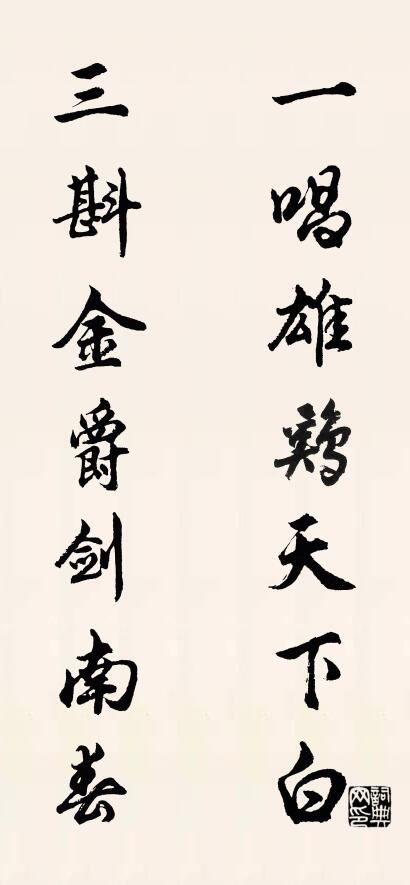 一唱雄鷄天下白
三斟金爵剑南春
詞典网印